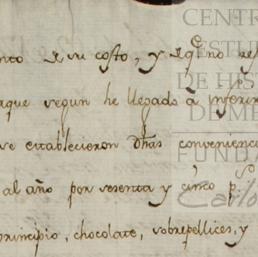 de su costo, y q.e no
aque segun he llegado à inferir
se establecieron dhas convenienc
al año por sesenta y cinco p.s
principio, chocolate, sobrepellices, y
CENTR
ESTU
DE HIS
DE ME
FUNDA
Carlo